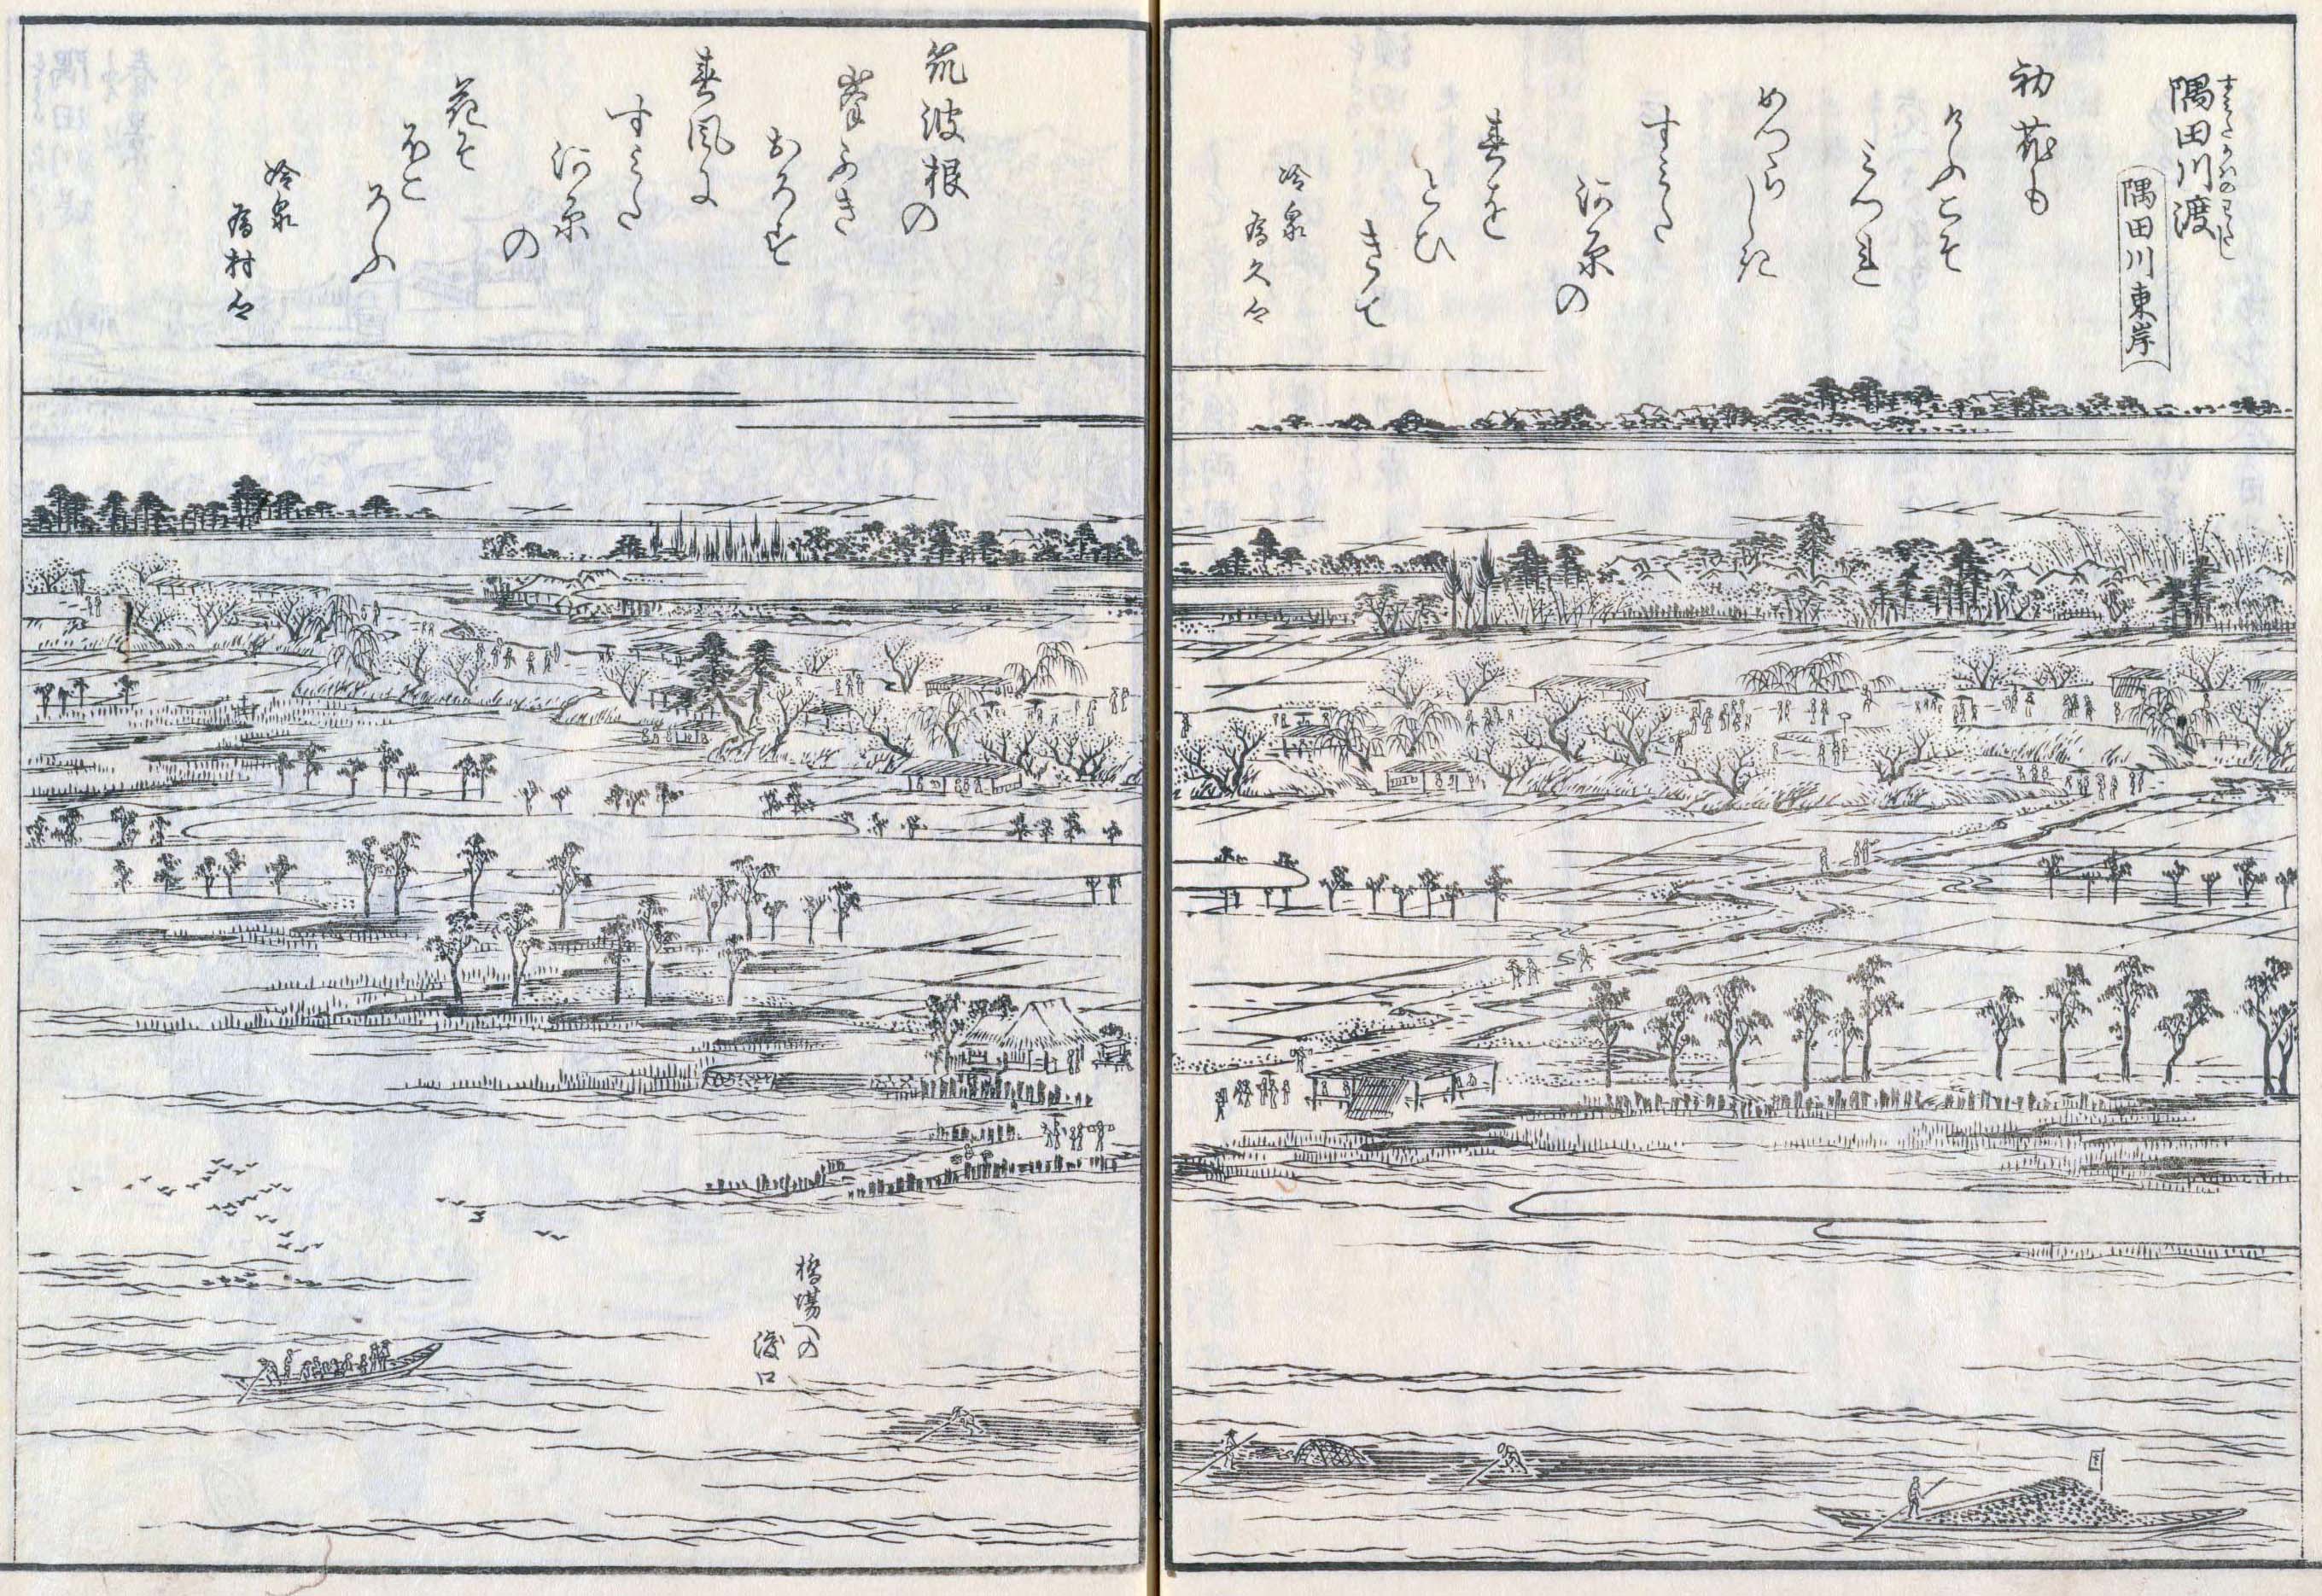 すみたかはのわたし
隅田川渡
隅田川東岸
初花も
けふこそ
みつれ
めつらしき
すみた
河原の
春を
とひ
きて
冷泉
為久卿
筑波根の
峯ふき
おろす
春風に
すみた
河原
の
花そ
ほこ
ろふ
冷泉
為村卿
橋場への
渡口